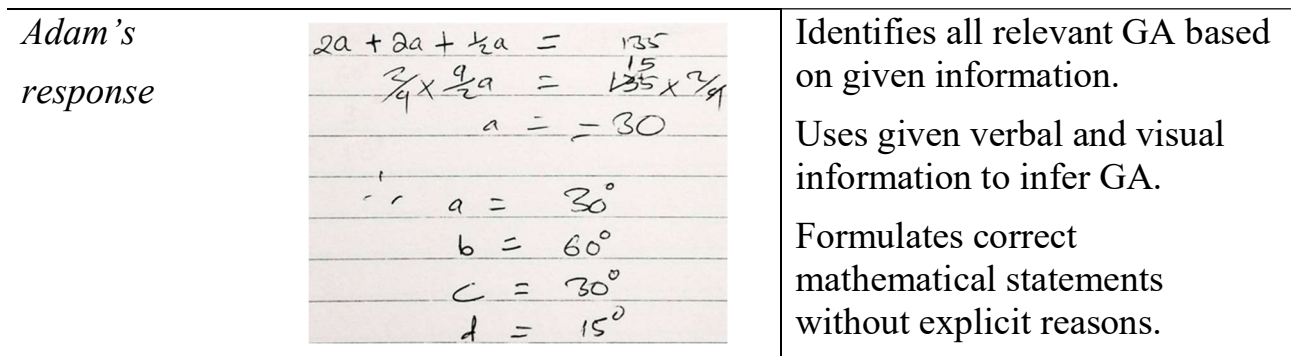 Adam's
response
2a + 2a + ½a = 135
2/9 × 9/2 a = 135 15 × 2/9
a = = 30
∴ a = 30°
b = 60°
c = 30°
d = 15°
Identifies all relevant GA based
on given information.
Uses given verbal and visual
information to infer GA.
Formulates correct
mathematical statements
without explicit reasons.